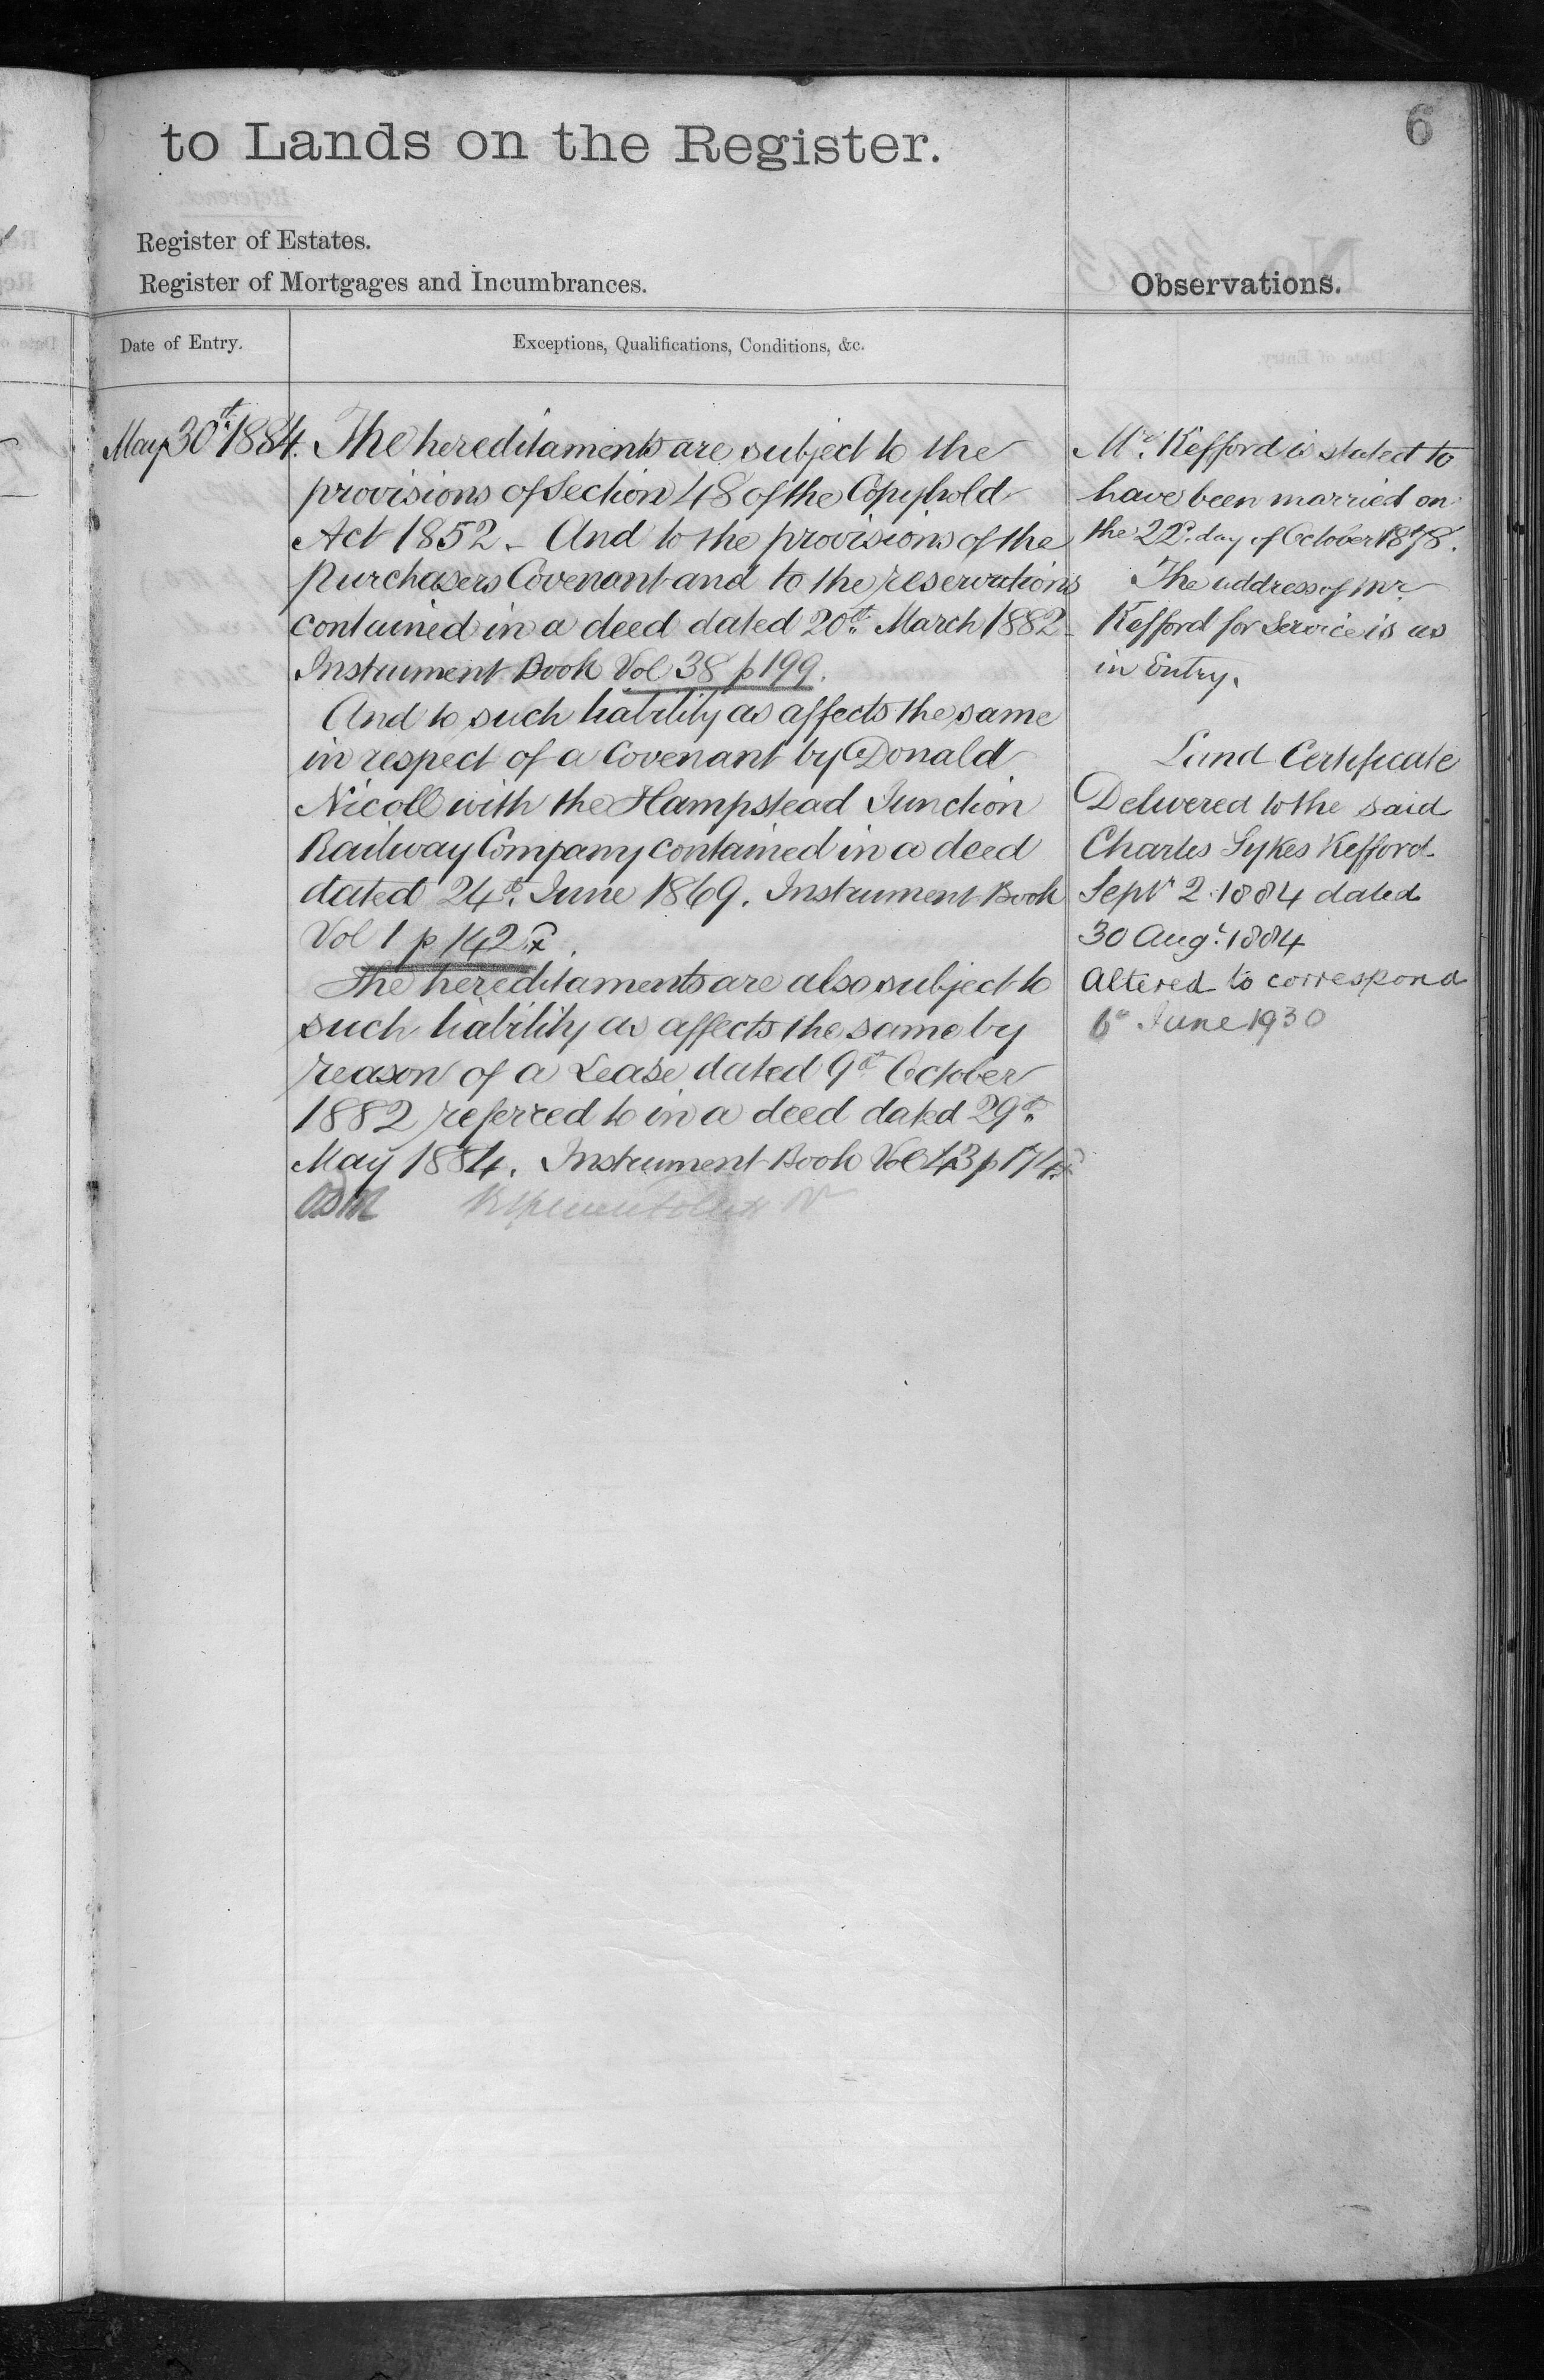 6
to Lands on the Register.
Register of Estates.
Register of Mortgages and Incumbrances.
Observations.
Date of Entry.
Exceptions, Qualifications, Conditions, &c.
May 30th 1884.
The hereditaments are subject to the
provisions of Section 48 of the Copyhold
Act 1852 - And to the provisions of the
purchasers Covenant and to the reservations
contained in a deed dated 20th March 1882
Instrument Book Vol 38 p 199.
And to such liability as affects the same
in respect of a Covenant by Donald
Nicoll with the Hampstead Junction
Railway Company contained in a deed
dated 24th June 1869. Instrument Book
Vol 1 p 142
The hereditaments are also subject to
such liability as affects the same by
reason of a Lease dated 9th October
1882 referred to in a deed dated 29th
May 1884. Instrument Book Vol 43 p 174
Mr. Kefford is stated to
have been married on
the 22d. day of October 1878.
The address of Mr.
Kefford for Service is as
in Entry.
Land Certificate
Delivered to the said
Charles Sykes Kefford
Septr 2 1884 dated
30 Augt 1884
Altered to correspond
6th June 1930